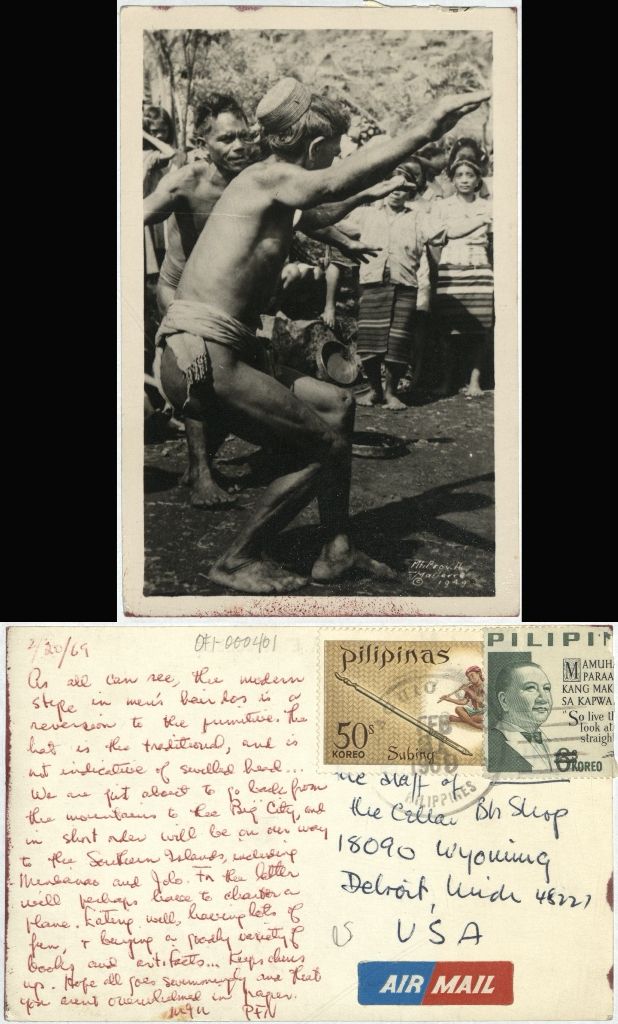 Mt. Prov. P.I.
© 1949
2/20/69
OFI-000401
As all can see, the modern
style in men's hair dos is a
reversion to the primitive. The
hat is the traditional, and is
not indicative of swelled head...
We are just about to go back from
the mountains to the Big City, and
in short order will be on our way
to the Southern Islands, including
Mindanao and Jolo. For the latter
will perhaps have to charter a
plane. Eating well, having lots of
fun, & buying a goodly variety of
books and artifacts... Keep chins
up. Hope all goes swimmingly and that
you arent overwhelmed in paper.
pilipinas
50s
KOREO
Subing
PILIPIN
MAMUHA
PARAA
KANG MAK
SA KAPWA
"So live th
look at
straigh
6s KOREO
FEB
PHILIPPINES
The Staff of
the Cellar Bk Shop
18090 Wyoming
Detroit, Mich 48221
USA
AIR MAIL